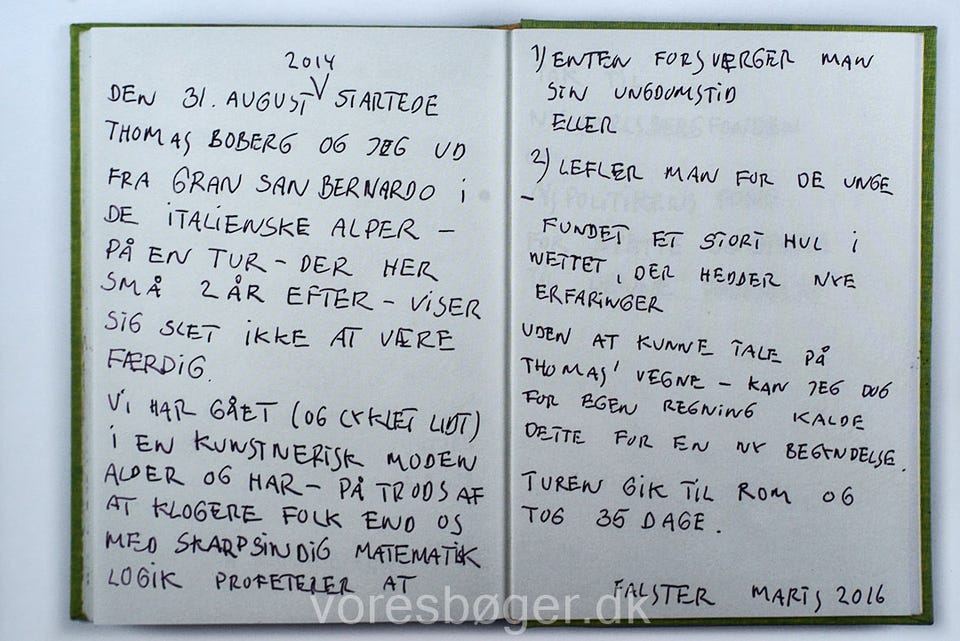 2014
DEN 31. AUGUST V STARTEDE
THOMAS BOBERG OG JEG UD
FRA GRAN SAN BERNARDO i
DE iTALIENSKE ALPER –
PÅ EN TUR – DER HER
SMÅ 2 ÅR EFTER – ViSER
SiG SLET iKKE AT VÆRE
FÆRDiG.
Vi HAR GÅET (OG CYKLET LIDT)
i EN KUNSTNERISK MODEN
ALDER OG HAR – PÅ TRODS AF
AT KLOGERE FOLK END OS
MED SKARPSINDIG MATEMATISK
LOGIK PROFETERER AT
1) ENTEN FORSVÆRGER MAN
SIN UNGDOMSTID
ELLER
2) LEFLER MAN FOR DE UNGE
–
FUNDET ET STORT HUL i
NETTET, DER HEDDER NYE
ERFARiNGER
UDEN AT KUNNE TALE PÅ
THOMAS' VEGNE – KAN JEG DOG
FOR EGEN REGNING KALDE
DETTE FOR EN NY BEGYNDELSE.
TUREN GIK TiL ROM OG
TOG 35 DAGE.
FALSTER MARTS 2016
voresbøger.dk